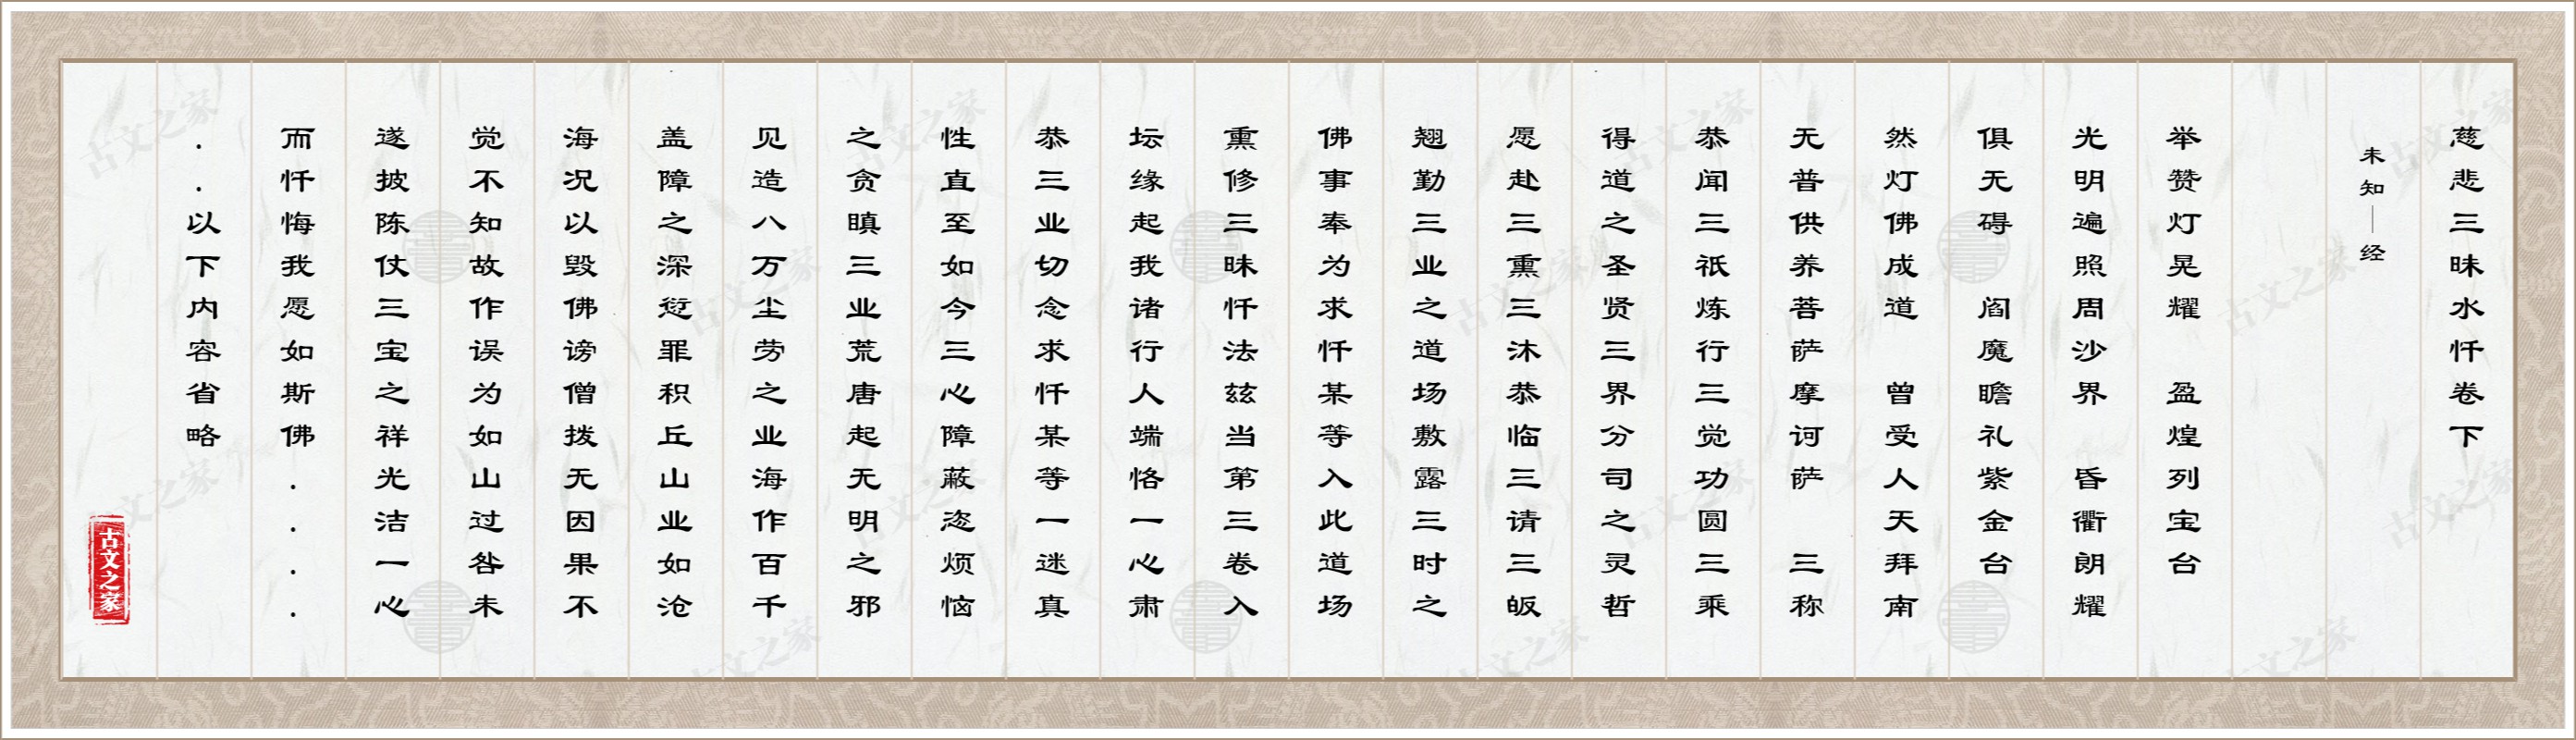 慈悲三昧水忏卷下
未知｜经
举赞灯晃耀 盈煌列宝台
光明遍照周沙界 昏衢朗耀
俱无碍 阎魔瞻礼紫金台
然灯佛成道 曾受人天拜南
无普供养菩萨摩诃萨 三称
恭闻三祇炼行三觉功圆三乘
得道之圣贤三界分司之灵哲
愿赴三熏三沐恭临三请三皈
翘勤三业之道场敷露三时之
佛事奉为求忏某等入此道场
熏修三昧忏法兹当第三卷入
坛缘起我诸行人端恪一心肃
恭三业切念求忏某等一迷真
性直至如今三心障蔽恣烦恼
之贪瞋三业荒唐起无明之邪
见造八万尘劳之业海作百千
盖障之深愆罪积丘山业如沧
海况以毁佛谤僧拨无因果不
觉不知故作误为如山过咎未
遂披陈仗三宝之祥光洁一心
而忏悔我愿如斯佛....
..以下内容省略
古文之家